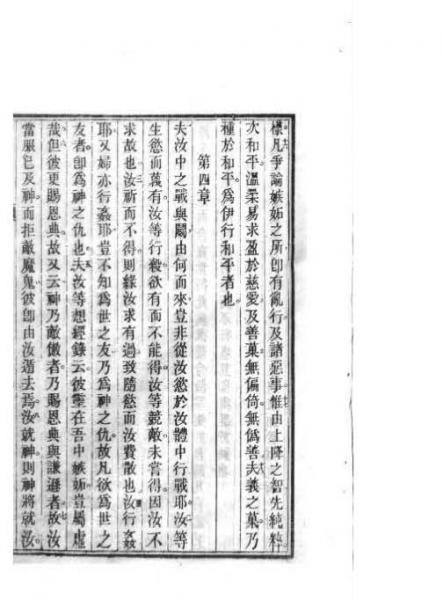 樣凡爭論嫉妬之所卽有亂行及諸惡事惟由上降之智先純粹
次和平溫柔易求盈於慈愛及善菓無偏倚無僞善夫義之菓乃
種於和平爲伊行和平者也
第四章
夫汝中之戰與鬬由何而來豈非從汝慾於汝體中行戰耶汝等
生慾而萬有汝等行殺欲有而不能得汝等競敵未嘗得因汝不
求故也汝祈而不得則緣汝求有過致隨慾而汝費散也汝行姦
耶又婦亦行姦耶豈不知爲世之友乃爲神之仇故凡欲爲世之
友者卽爲神之仇也夫汝等想經錄云彼靈在吾中嫉妬豈屬虛
哉但彼更賜恩典故又云神乃敵傲者乃賜恩典與謙遜者故汝
當服己及神而拒敵魔鬼彼卽由汝遁去焉汝就神則神將就汝